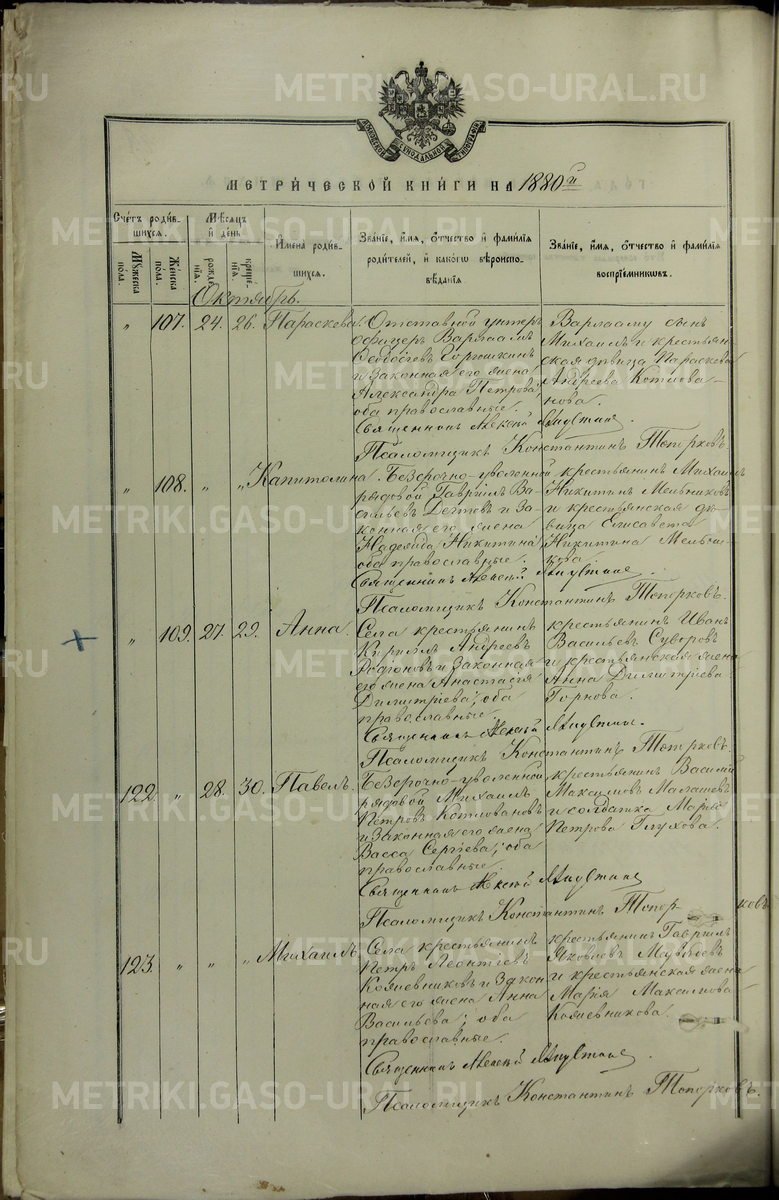 METRIKI.GASO-URAL.RU
МЕТРИЧЕСКОЙ КНИГИ НА 1880й
Счетъ родившихся.
Мѣсяцъ и день
Имена родившихся.
Званіе, имя, отчество и фамилія родителей, и какого вѣроисповѣданія
Званіе, имя, отчество и фамилія воспріемниковъ.
Мужеска пола.
Женска пола.
рожденія.
крещенія.
Октябрь.
„ 107. 24. 26. Параскева.
Отставной унтеръ
офицеръ Варлаамъ
Горошкинъ
и законная его жена
Александра Петрова,
оба православные.
Варлаамъ сынъ
Михаилъ и крестьян
ская дѣвица Параскева
Андреева Котлова
нова.
Священникъ Алексей
Псаломщикъ Константинъ Топорковъ.
„ 108. „ „ Капитолина.
Безсрочно-уволенной
рядовой Гавріилъ Ва
сильевъ и за
конная его жена
Надежда Никитина
оба православные.
крестьянинъ Михаилъ
Никитинъ Мельниковъ
и крестьянская дѣ
вица Елисавета
Никитина Мельни
кова.
Священникъ Алексей
Псаломщикъ Константинъ Топорковъ.
„ 109. 27. 29. Анна.
Села крестьянинъ
Кириллъ Андреевъ
Родіоновъ и законная
его жена Анастасія
Димитріева; оба
православные.
крестьянинъ Иванъ
Васильевъ Суворовъ
и крестьянская жена
Анна Димитріева
Горнова.
Священникъ Алексей
Псаломщикъ Константинъ Топорковъ.
122. „ 28. 30. Павелъ.
Безсрочно-уволенной
рядовой Михаилъ
Петровъ Котловановъ
и законная его жена
Васса Сергіева; оба
православные.
крестьянинъ Василій
Максимовъ Малашевъ
и солдатка Марія
Петрова Глухова.
Священникъ Алексей
Псаломщикъ Константинъ Топорковъ
123. „ „ „ Михаилъ.
Села крестьянинъ
Петръ Леонтіевъ
Кожевниковъ и закон
ная его жена Анна
Васильева; оба
православные.
крестьянинъ Гавріилъ
Яковлевъ
и крестьянская жена
Марія Максимова
Кожевникова.
Священникъ Алексей
Псаломщикъ Константинъ Топорковъ.